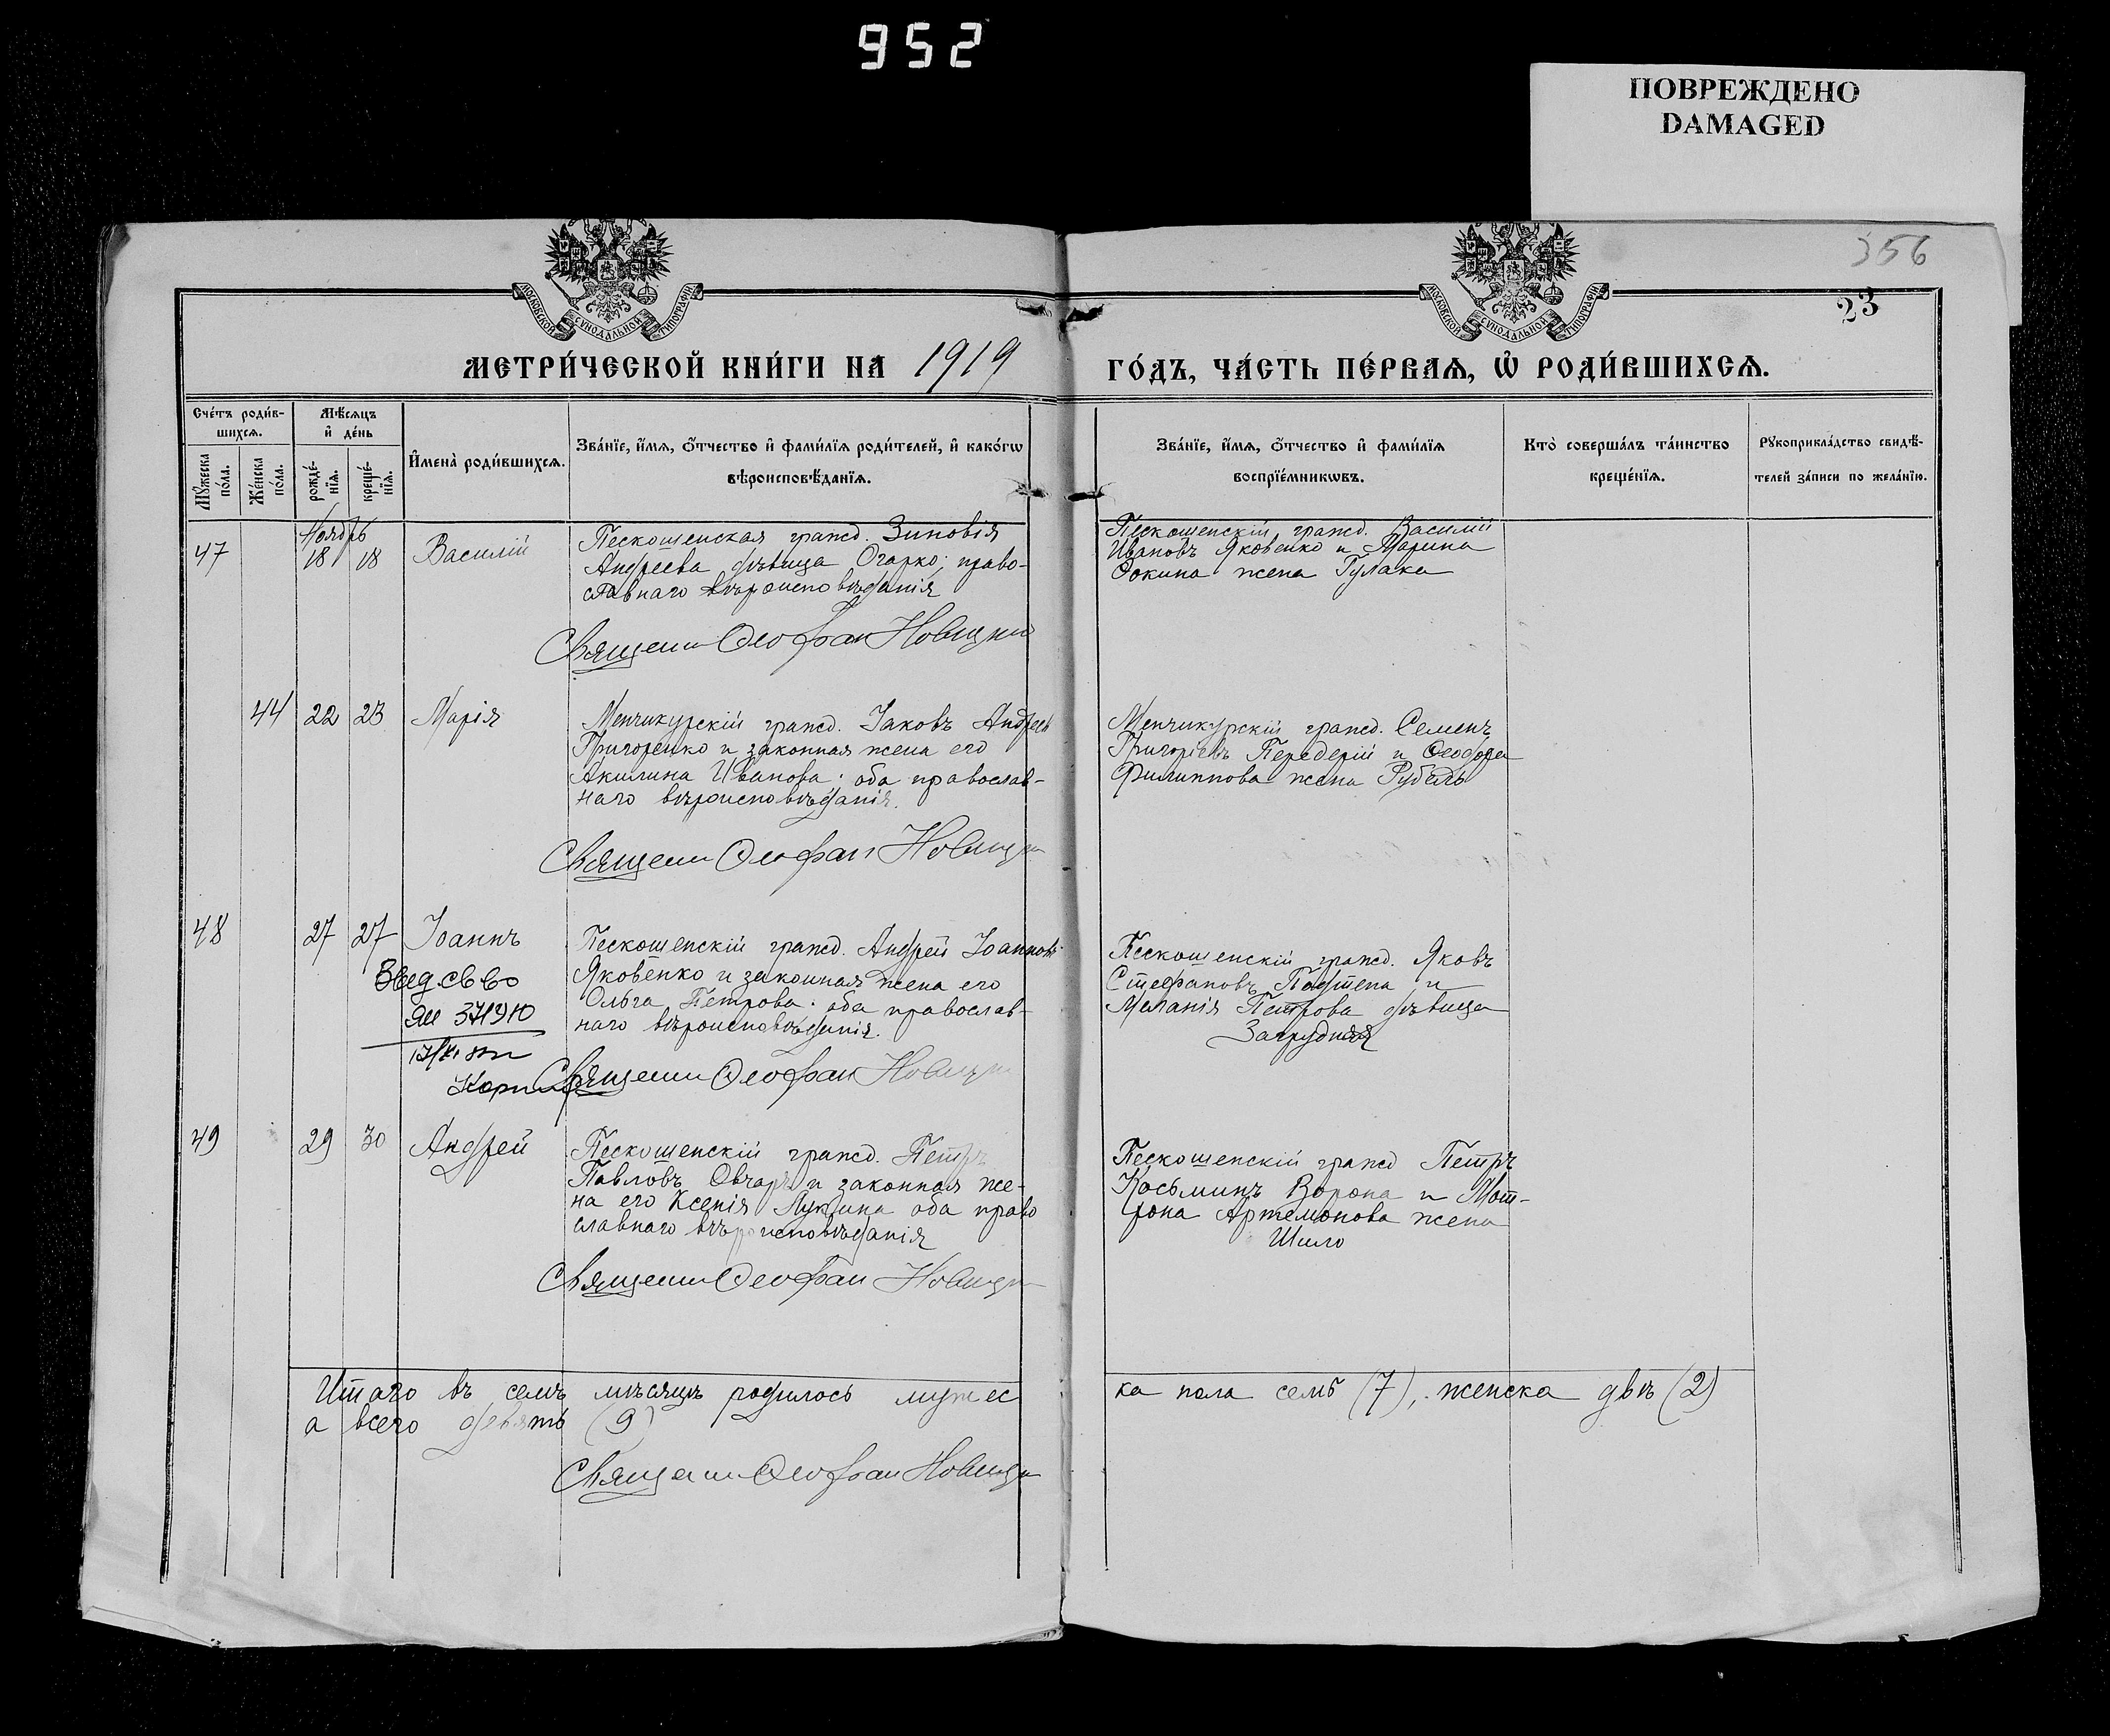 952
ПОВРЕЖДЕНО
DAMAGED
356
23
МОСКОВСКОЙ СѴНОДАЛЬНОЙ ТИПОГРАФІИ
МОСКОВСКОЙ СѴНОДАЛЬНОЙ ТИПОГРАФІИ
МЕТРИ́ЧЕСКОЙ КНИ́ГИ НА 1919 ГО́ДЪ, ЧА́СТЬ ПЕ́РВАѦ, Ѡ҆ РОДИ́ВШИХСѦ.
Сче́тъ роди́в-
шихсѧ.
Мѣ́сѧцъ
и҆ де́нь
Мꙋ́жеска
по́ла.
Же́нска
по́ла.
рожде́-
нїѧ.
креще́-
нїѧ.
И҆мена̀ роди́вшихсѧ.
Зва́нїе, и҆́мѧ, ѻ҆́тчество и҆ фами́лїѧ роди́телей, и҆ како́гѡ
вѣроисповѣ́данїѧ.
Зва́нїе, и҆́мѧ, ѻ҆́тчество и҆ фами́лїѧ
воспрїе́мникѡвъ.
Кто̀ соверша́лъ та́инство
креще́нїѧ.
Рꙋкоприкла́дство свидѣ́-
телей за́писи по жела́нїю.
Ноябрь
47 18 18 Василій
Пескошенская гражд. Зиновія
Андреева дѣвица Огарко; право-
славнаго вѣроисповѣданія
Священ Ѳеофан Новицкий
Пескошенскій гражд. Василій
Ивановъ Яковенко и Марина
Ѳокина жена Гулака
44 22 23 Марія
Менчикурскій гражд. Іаковъ Андреевъ
Григоренко и законная жена его
Акилина Иванова; оба православ-
наго вѣроисповѣданія.
Священ Ѳеофан Новицкий
Менчикурскій гражд. Семенъ
Григорьевъ Передерій и Ѳеодора
Филиппова жена Рубель
48 27 27 Іоаннъ
св во
371910
Пескошенскій гражд. Андрей Іоанновъ
Яковенко и законная жена его
Ольга Петрова; оба православ-
наго вѣроисповѣданія.
Священ Ѳеофан Новицкий
Пескошенскій гражд. Яковъ
Стефановъ и
Меланія Петрова дѣвица
Загрудняя
49 29 30 Андрей
Пескошенскій гражд. Петръ
Павловъ Овчаръ и законная же-
на его Ксенія Лукина оба право
славнаго вѣроисповѣданія
Священ Ѳеофан Новицкий
Пескошенскій гражд Петръ
Косьминъ Ворона и Мат-
рона Артемонова жена
Шило
Итаго въ семъ мѣсяцѣ родилось мужес ка пола семь (7), женска двѣ (2)
а всего девять (9)
Священ Ѳеофан Новицкий